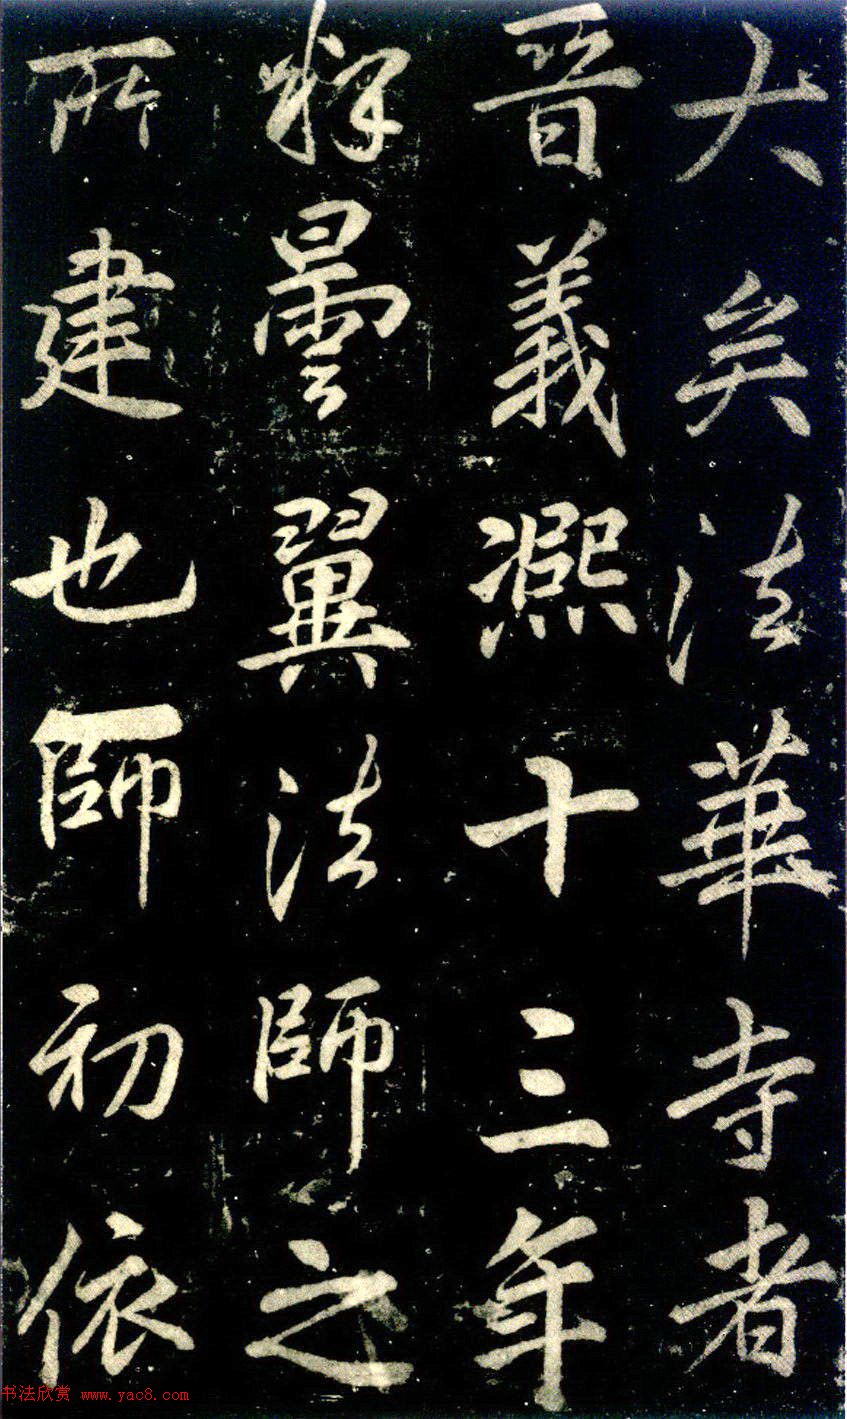 大矣法華寺者
晉義熈十三年
釋曇翼法師之
所建也師初依
书法欣赏 www.yac8.com